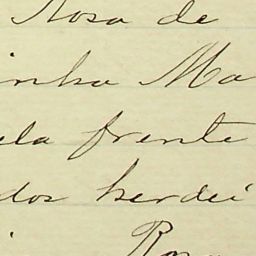 Rosa de
inha Ma
ela frente
dos herdei
Ro